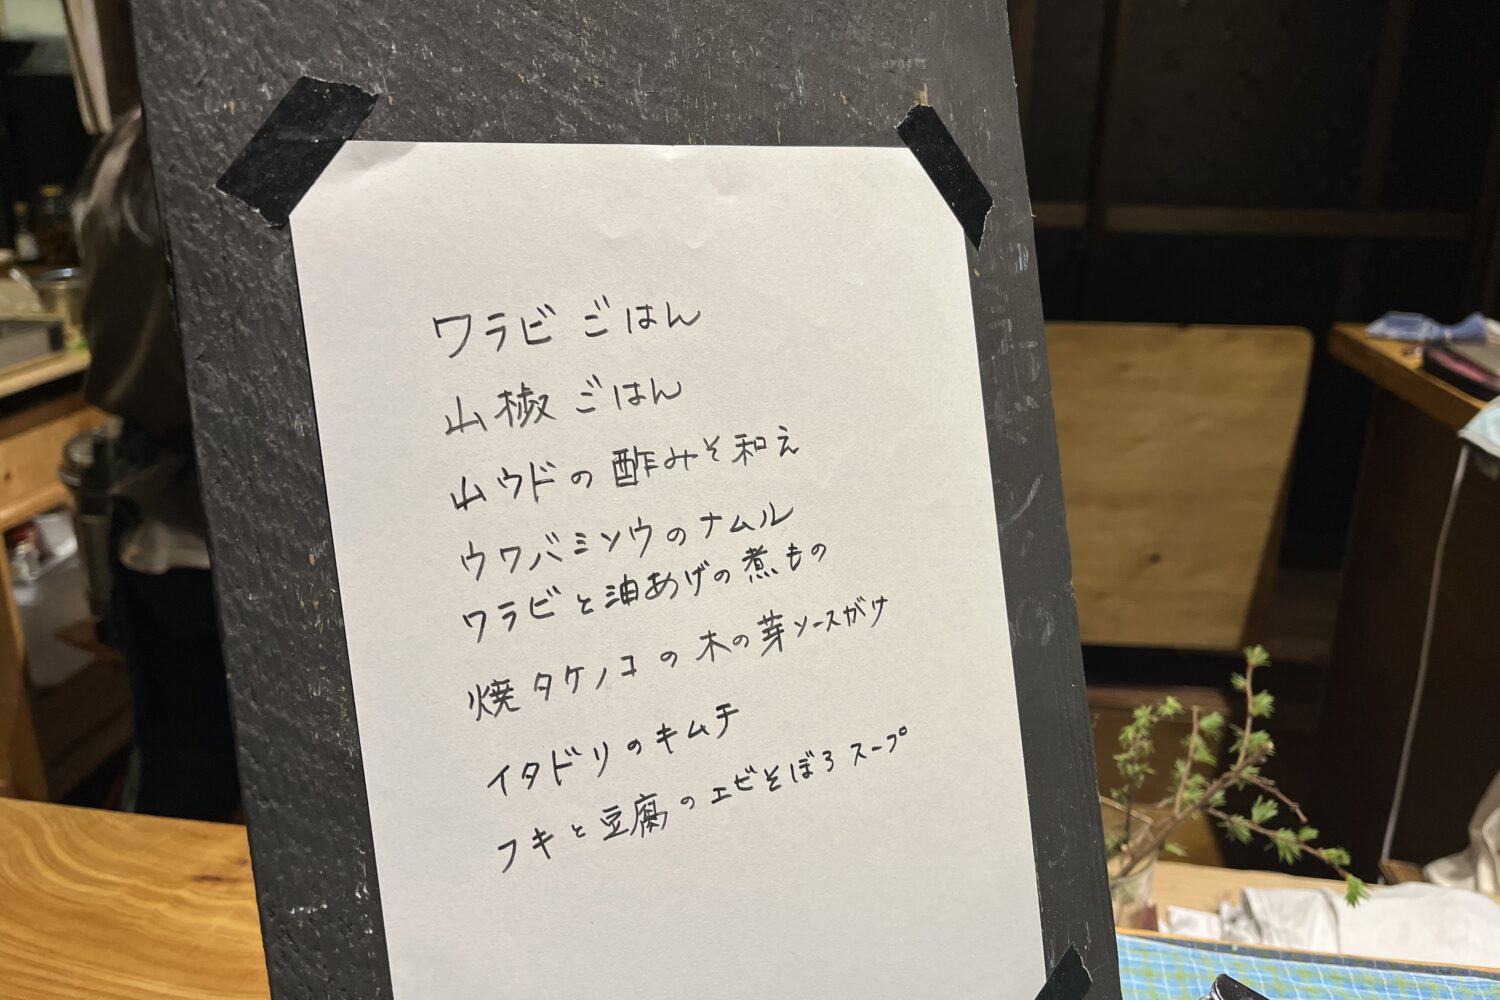 ワラビごはん
山椒ごはん
山ウドの酢みそ和え
ウワバミソウのナムル
ワラビと油あげの煮もの
焼タケノコの木の芽ソースがけ
イタドリのキムチ
フキと豆腐のエビそぼろスープ